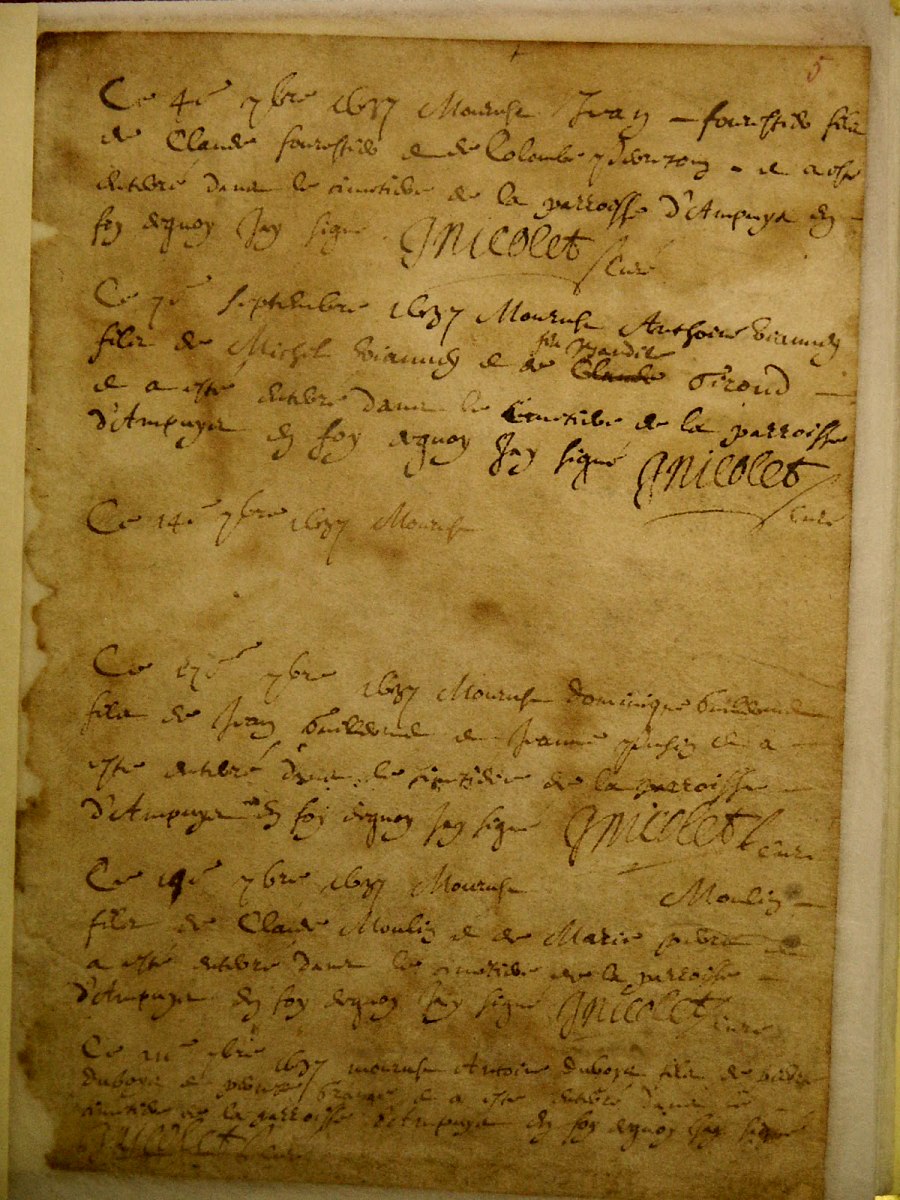 5
Ce 4e 7bre 1637 Mourust Jean fourestier fils
de Claude fourestier et de Colombe et a este
enterré dans le cimetiere de la parroisse d'Ampuys En
foy dequoy Jay signé JNicolet Curé
Ce 7e Septembre 1637 Mourust Anthoine
fils de Michel et de feu Claude Giroud
et a este enterré dans le Cimetiere de la parroisse
d'Ampuys En foy dequoy Jay signé JNicolet
Curé
Ce 14e 7bre 1637 Mourust
Ce 17e 7bre 1637 Mourust dominique
fils de Jean et Jeanne et a
este enterré dans le cimetiere de la parroisse
d'Ampuys En foy dequoy Jay signé JNicolet Curé
Ce 19e 7bre 1637 Mourust Moulin
fils de Claude Moulin et de Marie et
a esté enterré dans le cimetiere de la parroisse
d'Ampuys En foy dequoy Jay signé JNicolet Curé
Ce 7bre 1637 mourust Antoine duboys fils de
duboys et et a este enterré dans le
cimetiere de la parroisse d'Ampuys En foy dequoy Jay signé
JNicolet Curé